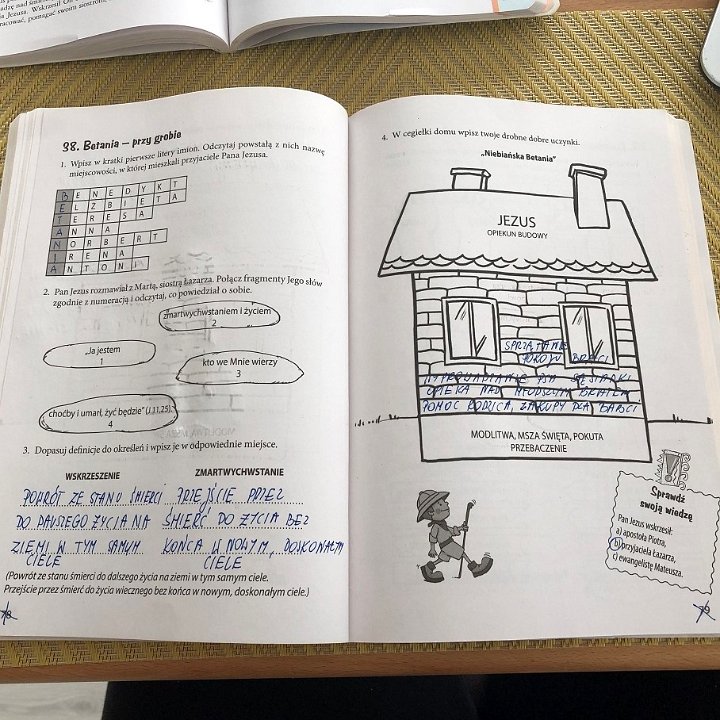 38. Betania – przy grobie
1. Wpisz w kratki pierwsze litery imion. Odczytaj powstałą z nich nazwę
miejscowości, w której mieszkali przyjaciele Pana Jezusa.
BENEDYKT
ELŻBIETA
TERESA
ANNA
NORBERT
IRENA
ANTONI
2. Pan Jezus rozmawiał z Martą, siostrą Łazarza. Połącz fragmenty Jego słów
zgodnie z numeracją i odczytaj, co powiedział o sobie.
zmartwychwstaniem i życiem
2
„Ja jestem
1
kto we Mnie wierzy
3
choćby i umarł, żyć będzie" (J 11,25)
4
3. Dopasuj definicje do określeń i wpisz je w odpowiednie miejsce.
WSKRZESZENIE ZMARTWYCHWSTANIE
POWRÓT ZE STANU ŚMIERCI
DO DALSZEGO ŻYCIA NA
ZIEMI W TYM SAMYM
CIELE
PRZEJŚCIE PRZEZ
ŚMIERĆ DO ŻYCIA BEZ
KOŃCA W NOWYM, DOSKONAŁYM
CIELE
(Powrót ze stanu śmierci do dalszego życia na ziemi w tym samym ciele.
Przejście przez śmierć do życia wiecznego bez końca w nowym, doskonałym ciele.)
4. W cegiełki domu wpisz twoje drobne dobre uczynki.
„Niebiańska Betania"
JEZUS
OPIEKUN BUDOWY
SPRZĄTANIE
POKOJU BRACI
WYPROWADZANIE PSA SĄSIADKI
OPIEKA NAD MŁODSZYM BRATEM
POMOC RODZICA, ZAKUPY DLA BABCI
MODLITWA, MSZA ŚWIĘTA, POKUTA
PRZEBACZENIE
Sprawdź
swoją wiedzę
Pan Jezus wskrzesił:
a) apostoła Piotra,
b) przyjaciela Łazarza,
c) ewangelistę Mateusza.